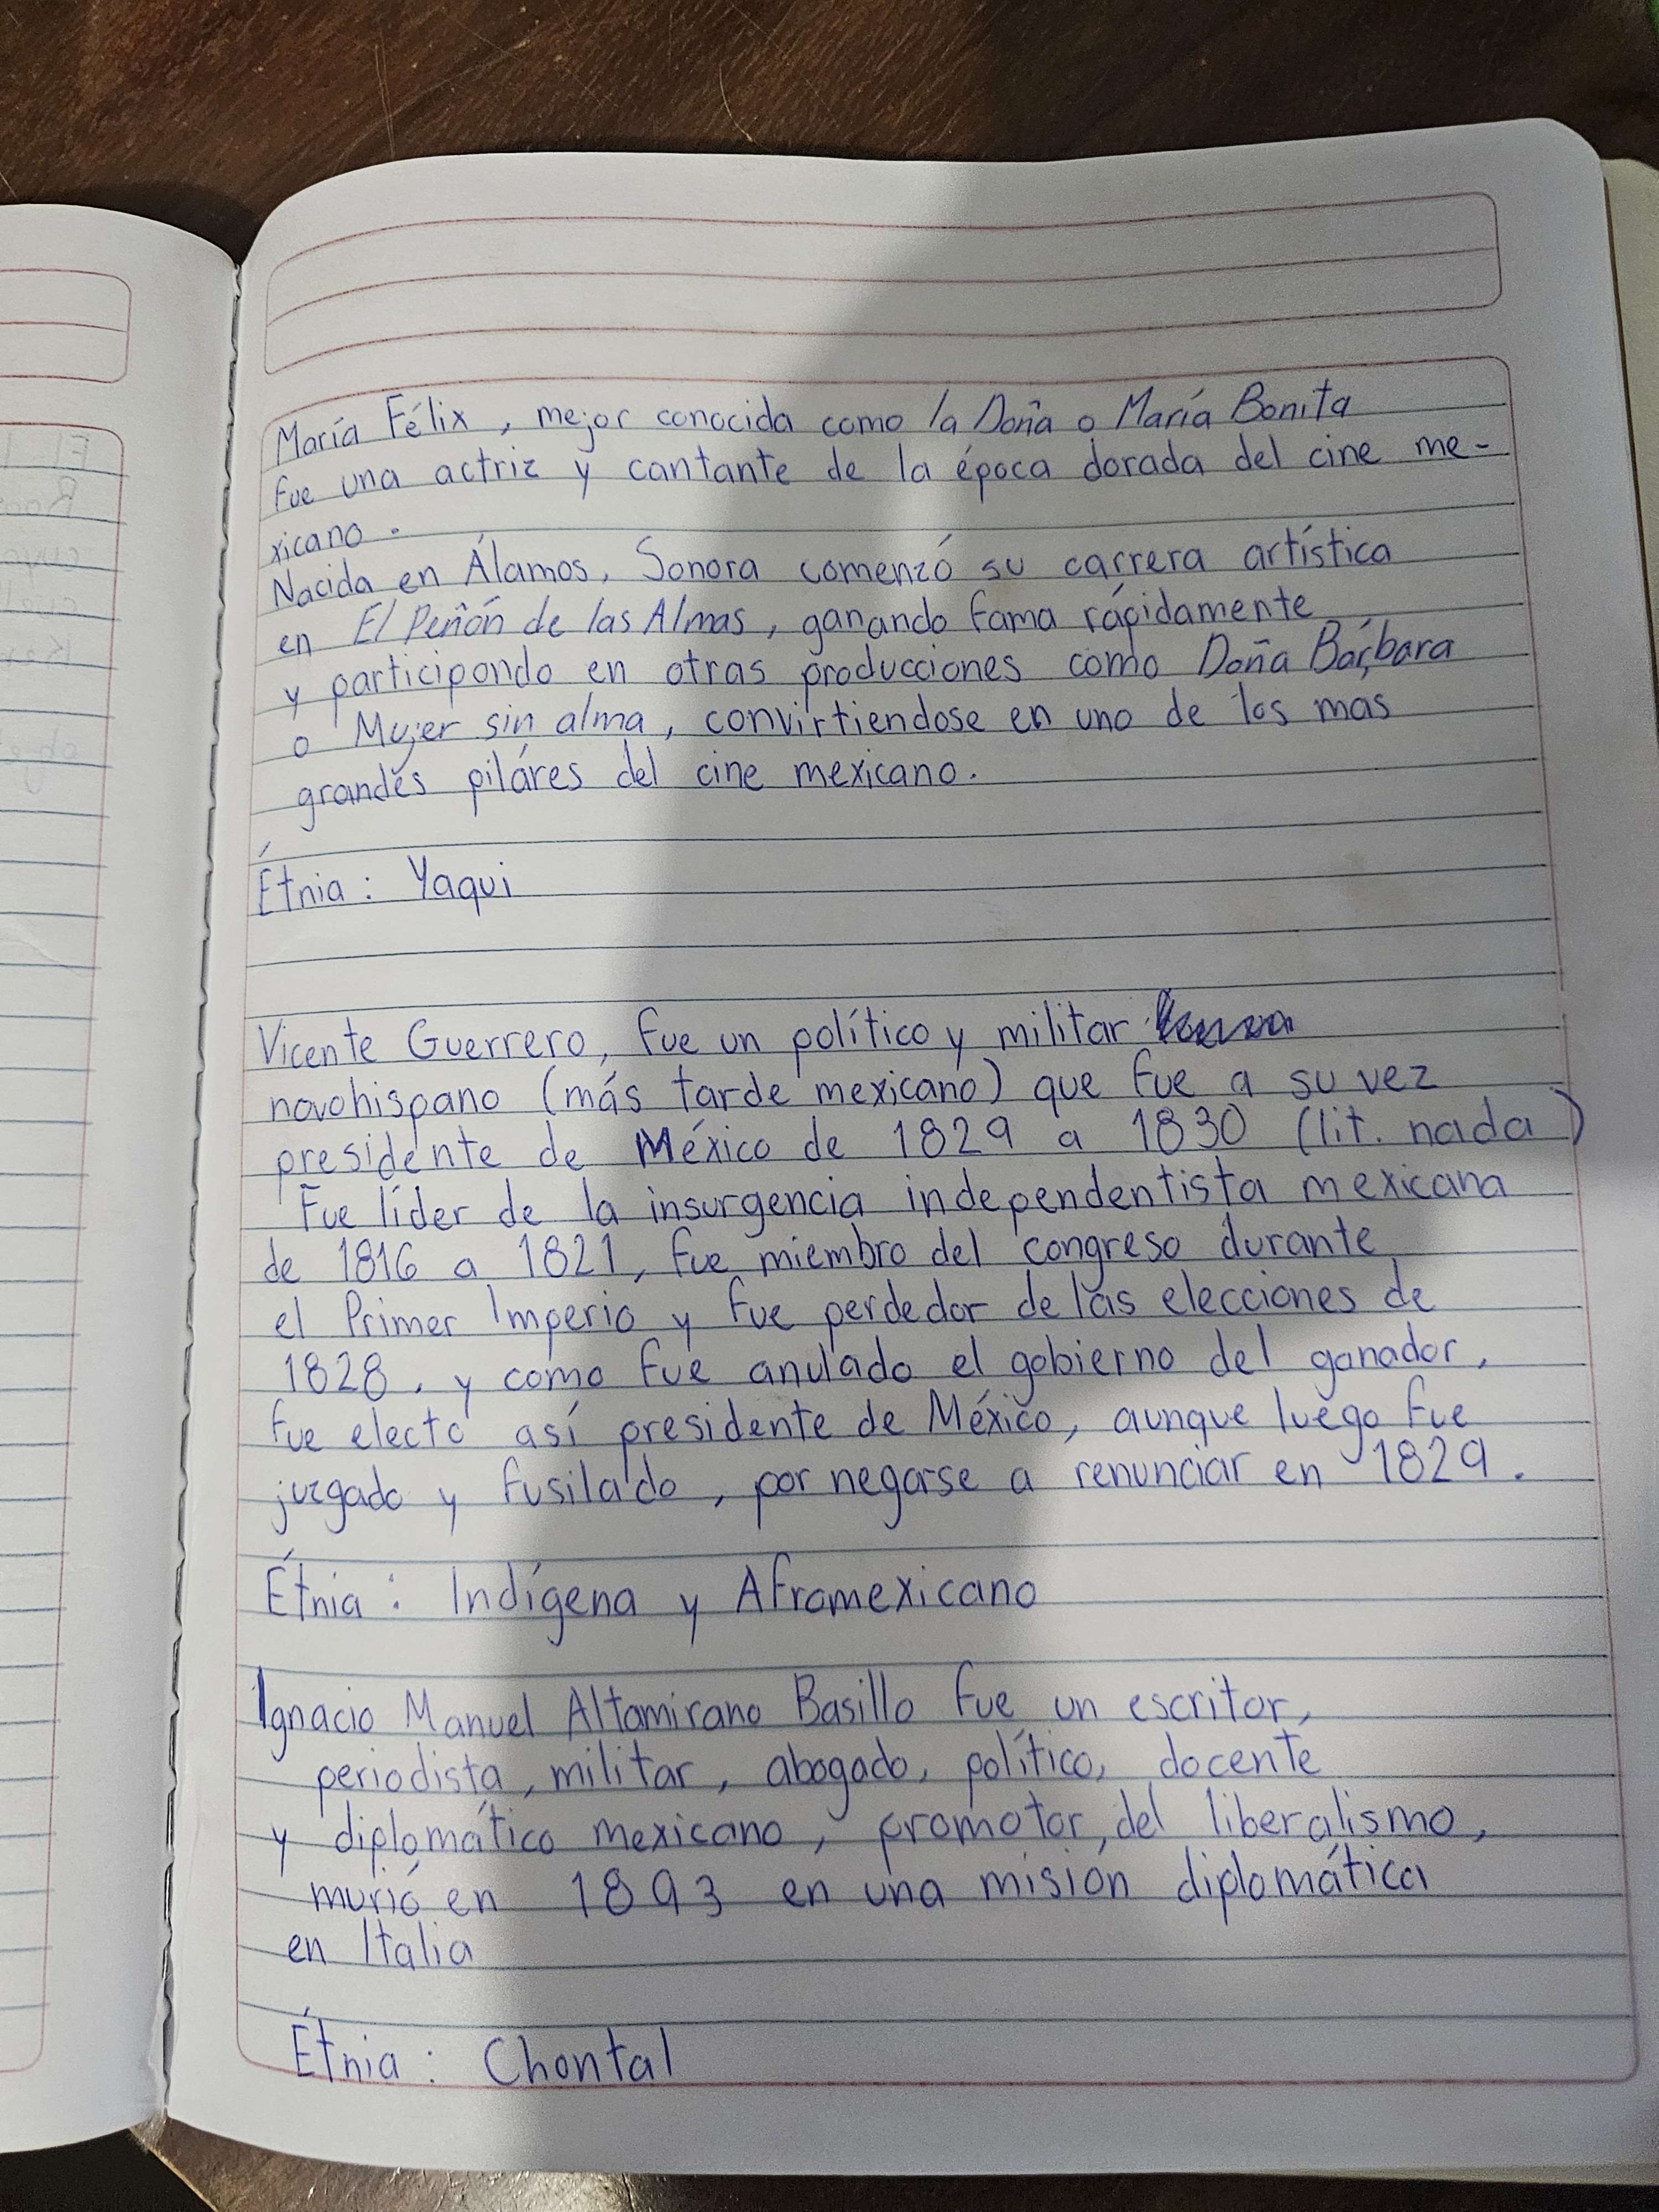 María Félix, mejor conocida como la Doña o María Bonita
fue una actriz y cantante de la época dorada del cine me-
xicano.
Nacida en Álamos, Sonora comenzó su carrera artística
en El Peñón de las Almas, ganando fama rápidamente
y participando en otras producciones como Doña Bárbara
o Mujer sin alma, convirtiendose en uno de los mas
grandes pilares del cine mexicano.
Étnia: Yaqui
Vicente Guerrero, fue un político y militar
novohispano (más tarde mexicano) que fue a su vez
presidente de México de 1829 a 1830 (lit. nada)
Fue líder de la insurgencia independentista mexicana
de 1816 a 1821, fue miembro del congreso durante
el Primer Imperio y fue perdedor de las elecciones de
1828, y como fue anulado el gobierno del ganador,
fue electo así presidente de México, aunque luego fue
juzgado y fusilado, por negarse a renunciar en 1829.
Étnia: Indígena y Afromexicano
Ignacio Manuel Altamirano Basillo fue un escritor,
periodista, militar, abogado, político, docente
y diplomático mexicano, promotor, del liberalismo,
murió en 1893 en una misión diplomática
en Italia
Étnia: Chontal